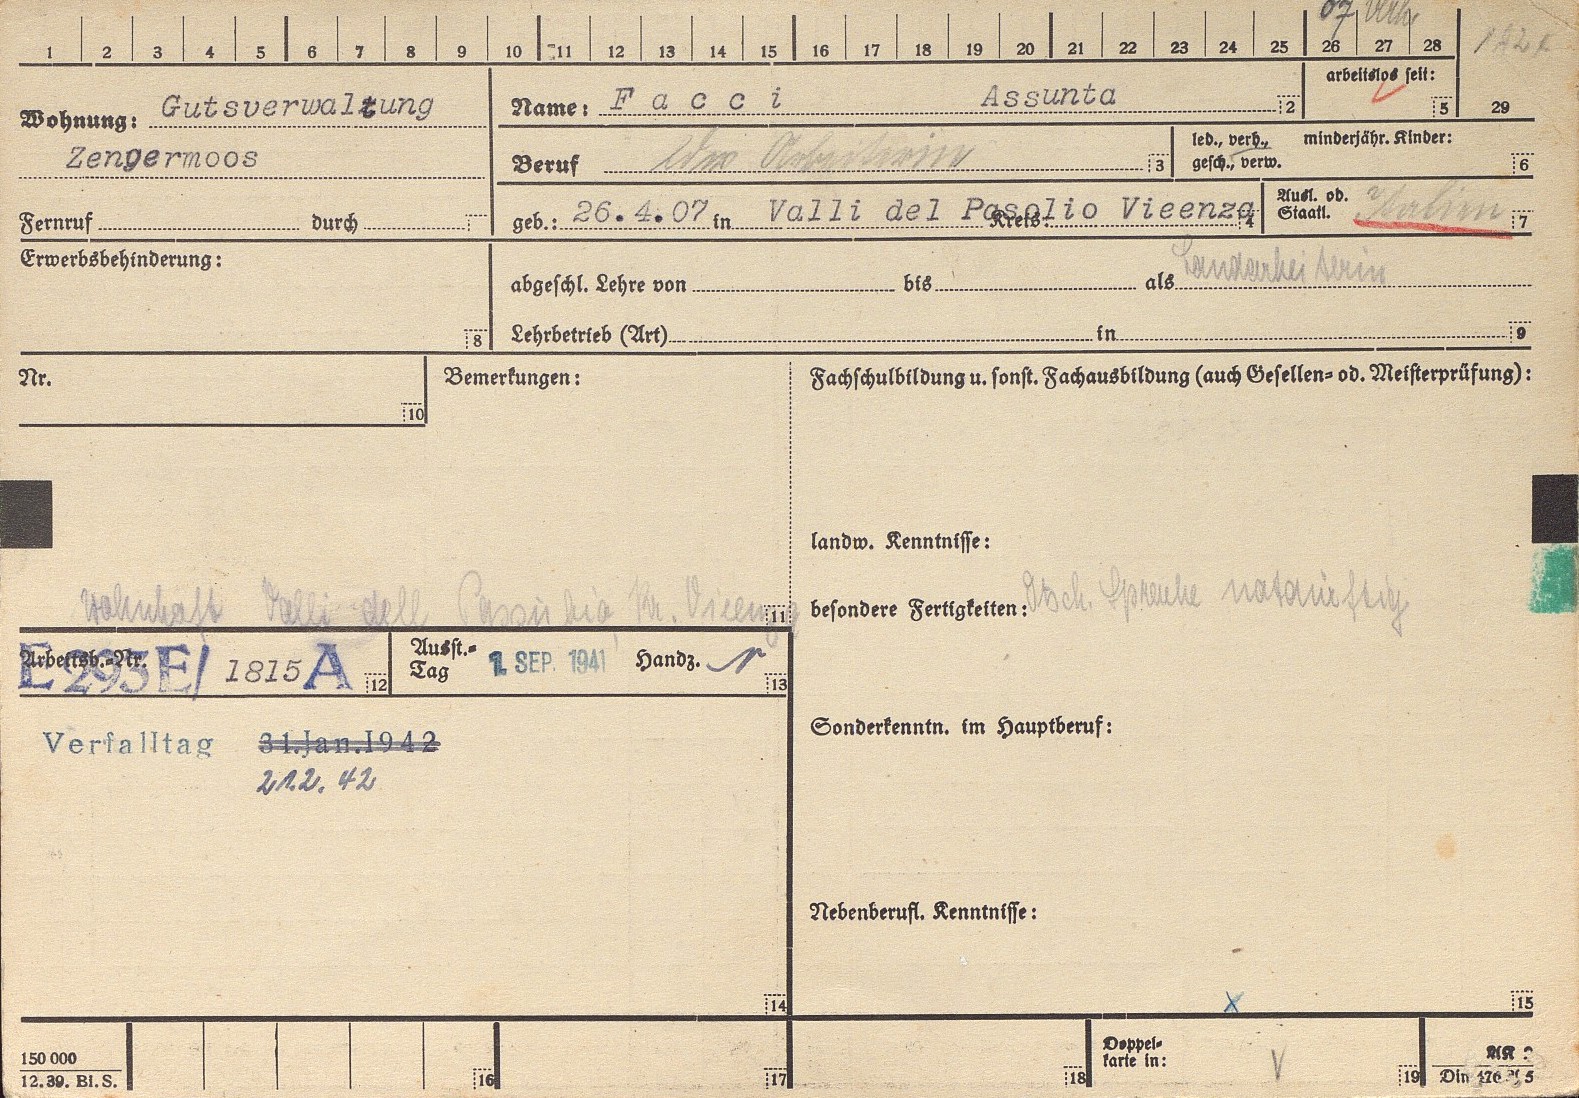 07 verh.
1 2 3 4 5 6 7 8 9 10 11 12 13 14 15 16 17 18 19 20 21 22 23 24 25 26 27 28
Wohnung: Gutsverwaltung
Zengermoos
Name: Facci Assunta 2
arbeitslos seit: 5
29
Beruf Arbeiterin 3
led., verh., minderjähr. Kinder:
gesch., verw. 6
Fernruf durch
geb.: 26.4.07 in Valli del Pasolio Vicenza Kreis: 4
Ausl. od.
Staatl. Italien 7
Erwerbsbehinderung: 8
abgeschl. Lehre von bis als Landarbeiterin
Lehrbetrieb (Art) in 9
Nr. 10
Bemerkungen:
Fachschulbildung u. sonst. Fachausbildung (auch Gesellen- od. Meisterprüfung):
landw. Kenntnisse:
wohnhaft Valli dell Passubio, Kr. Vicenza 11
besondere Fertigkeiten: Dtsch. Sprache notdürftig
Arbeitsb.-Nr. E 293E/ 1815 A 12
Ausst.-
Tag 1. SEP. 1941 Handz. 13
Sonderkenntn. im Hauptberuf:
Verfalltag 31.Jan.1942
21.2.42
Nebenberufl. Kenntnisse:
14
x 15
150 000
12.39. Bl. S.
16 17 18
Doppel-
karte in: V 19
AK
Din 476 A 5